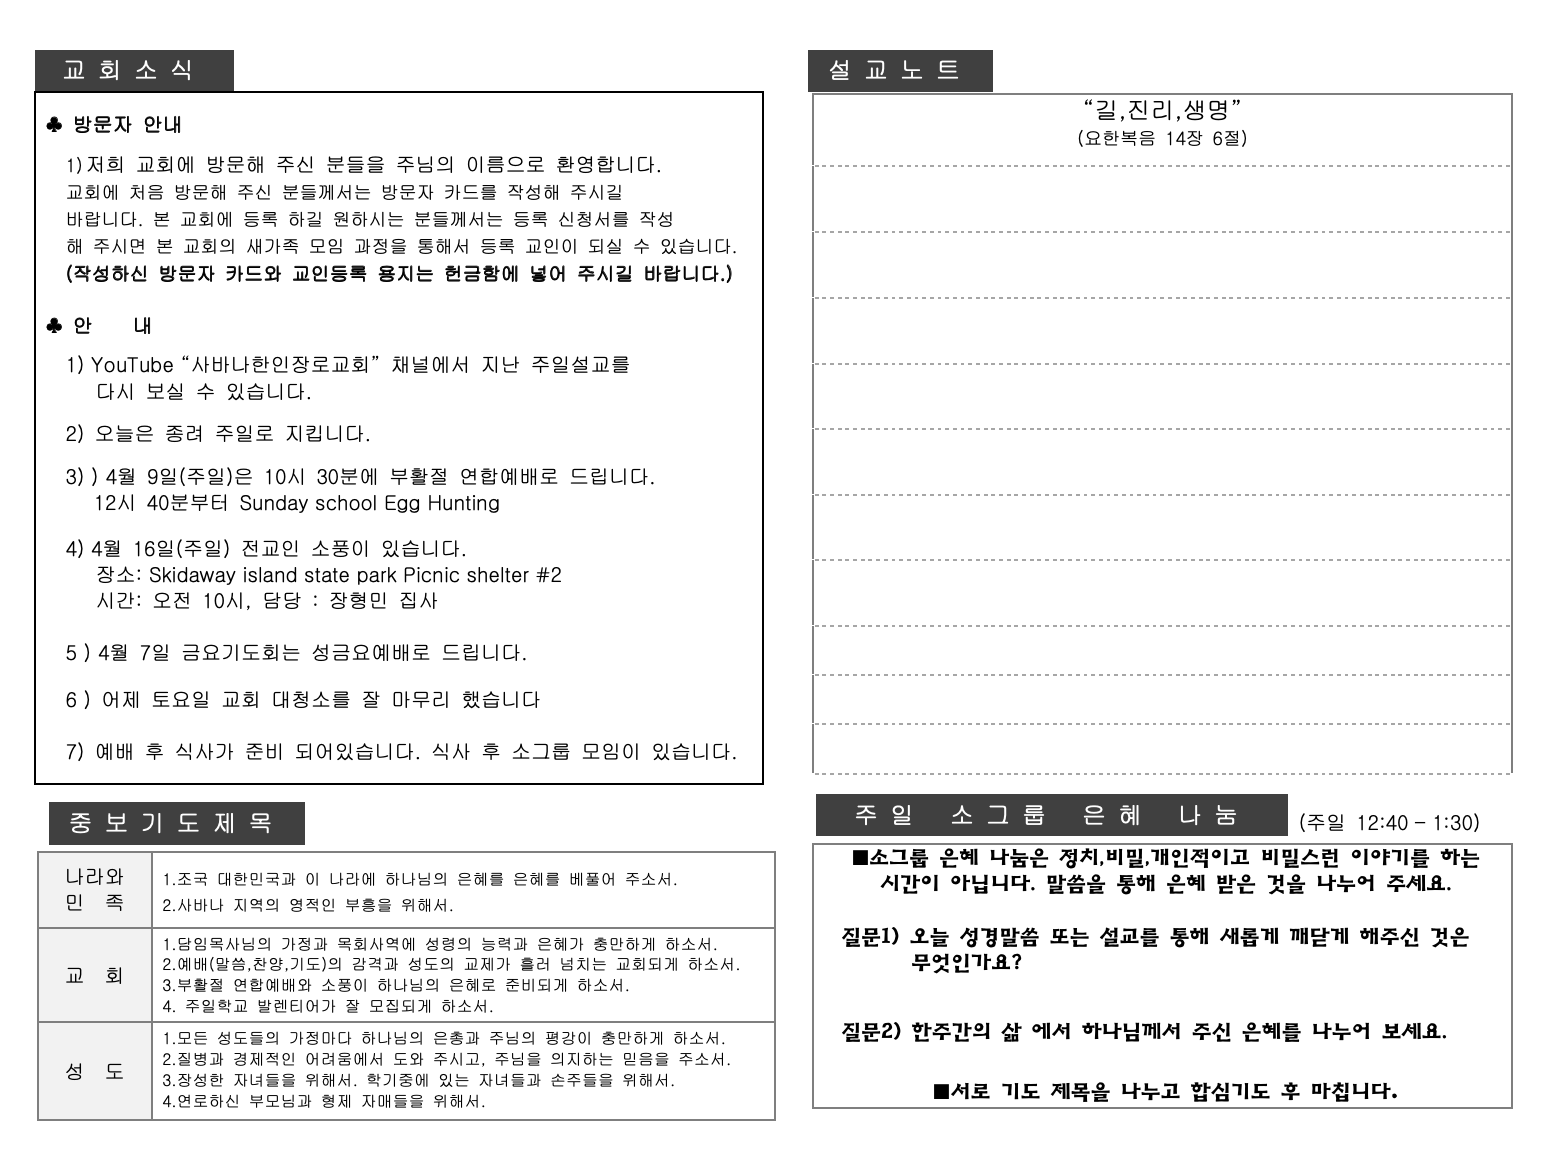 교 회 소 식
♣ 방문자 안내
1) 저희 교회에 방문해 주신 분들을 주님의 이름으로 환영합니다.
교회에 처음 방문해 주신 분들께서는 방문자 카드를 작성해 주시길
바랍니다. 본 교회에 등록 하길 원하시는 분들께서는 등록 신청서를 작성
해 주시면 본 교회의 새가족 모임 과정을 통해서 등록 교인이 되실 수 있습니다.
(작성하신 방문자 카드와 교인등록 용지는 헌금함에 넣어 주시길 바랍니다.)
♣ 안 내
1) YouTube “사바나한인장로교회” 채널에서 지난 주일설교를
다시 보실 수 있습니다.
2) 오늘은 종려 주일로 지킵니다.
3) ) 4월 9일(주일)은 10시 30분에 부활절 연합예배로 드립니다.
12시 40분부터 Sunday school Egg Hunting
4) 4월 16일(주일) 전교인 소풍이 있습니다.
장소: Skidaway island state park Picnic shelter #2
시간: 오전 10시, 담당 : 장형민 집사
5 ) 4월 7일 금요기도회는 성금요예배로 드립니다.
6 ) 어제 토요일 교회 대청소를 잘 마무리 했습니다
7) 예배 후 식사가 준비 되어있습니다. 식사 후 소그룹 모임이 있습니다.
중 보 기 도 제 목
나라와
민 족
1.조국 대한민국과 이 나라에 하나님의 은혜를 은혜를 베풀어 주소서.
2.사바나 지역의 영적인 부흥을 위해서.
교 회
1.담임목사님의 가정과 목회사역에 성령의 능력과 은혜가 충만하게 하소서.
2.예배(말씀,찬양,기도)의 감격과 성도의 교제가 흘러 넘치는 교회되게 하소서.
3.부활절 연합예배와 소풍이 하나님의 은혜로 준비되게 하소서.
4. 주일학교 발렌티어가 잘 모집되게 하소서.
성 도
1.모든 성도들의 가정마다 하나님의 은총과 주님의 평강이 충만하게 하소서.
2.질병과 경제적인 어려움에서 도와 주시고, 주님을 의지하는 믿음을 주소서.
3.장성한 자녀들을 위해서. 학기중에 있는 자녀들과 손주들을 위해서.
4.연로하신 부모님과 형제 자매들을 위해서.
설 교 노 트
“길,진리,생명”
(요한복음 14장 6절)
주 일 소 그 룹 은 혜 나 눔
(주일 12:40 – 1:30)
■소그룹 은혜 나눔은 정치,비밀,개인적이고 비밀스런 이야기를 하는
시간이 아닙니다. 말씀을 통해 은혜 받은 것을 나누어 주세요.
질문1) 오늘 성경말씀 또는 설교를 통해 새롭게 깨닫게 해주신 것은
무엇인가요?
질문2) 한주간의 삶 에서 하나님께서 주신 은혜를 나누어 보세요.
■서로 기도 제목을 나누고 합심기도 후 마칩니다.